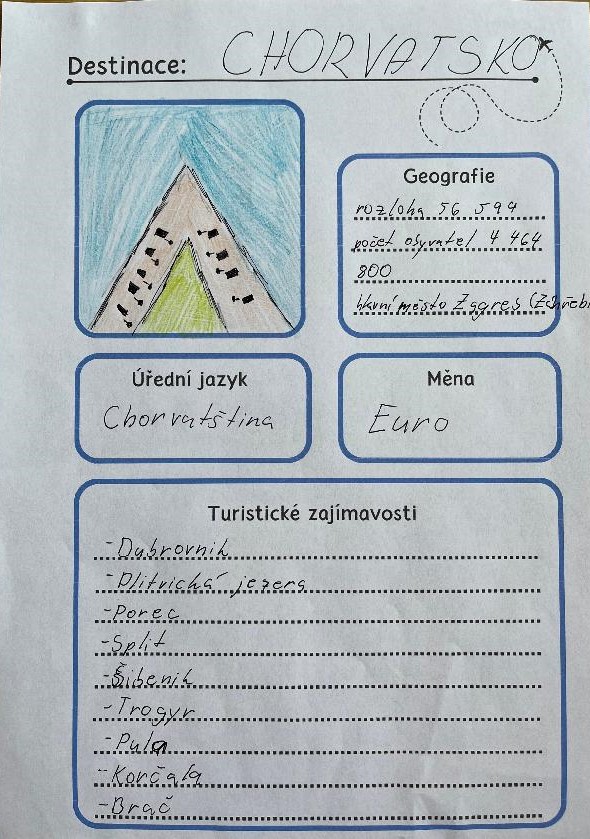 Destinace: CHORVATSKO
Geografie
rozloha 56 594
počet obyvatel 4 464
800
hlavní město Zagreb (Záhřeb)
Úřední jazyk
Chorvatština
Měna
Euro
Turistické zajímavosti
-Dubrovnik
-Plitvická jezera
-Porec
-Split
-Šibenik
-Trogyr
-Pula
-Korčala
-Brač